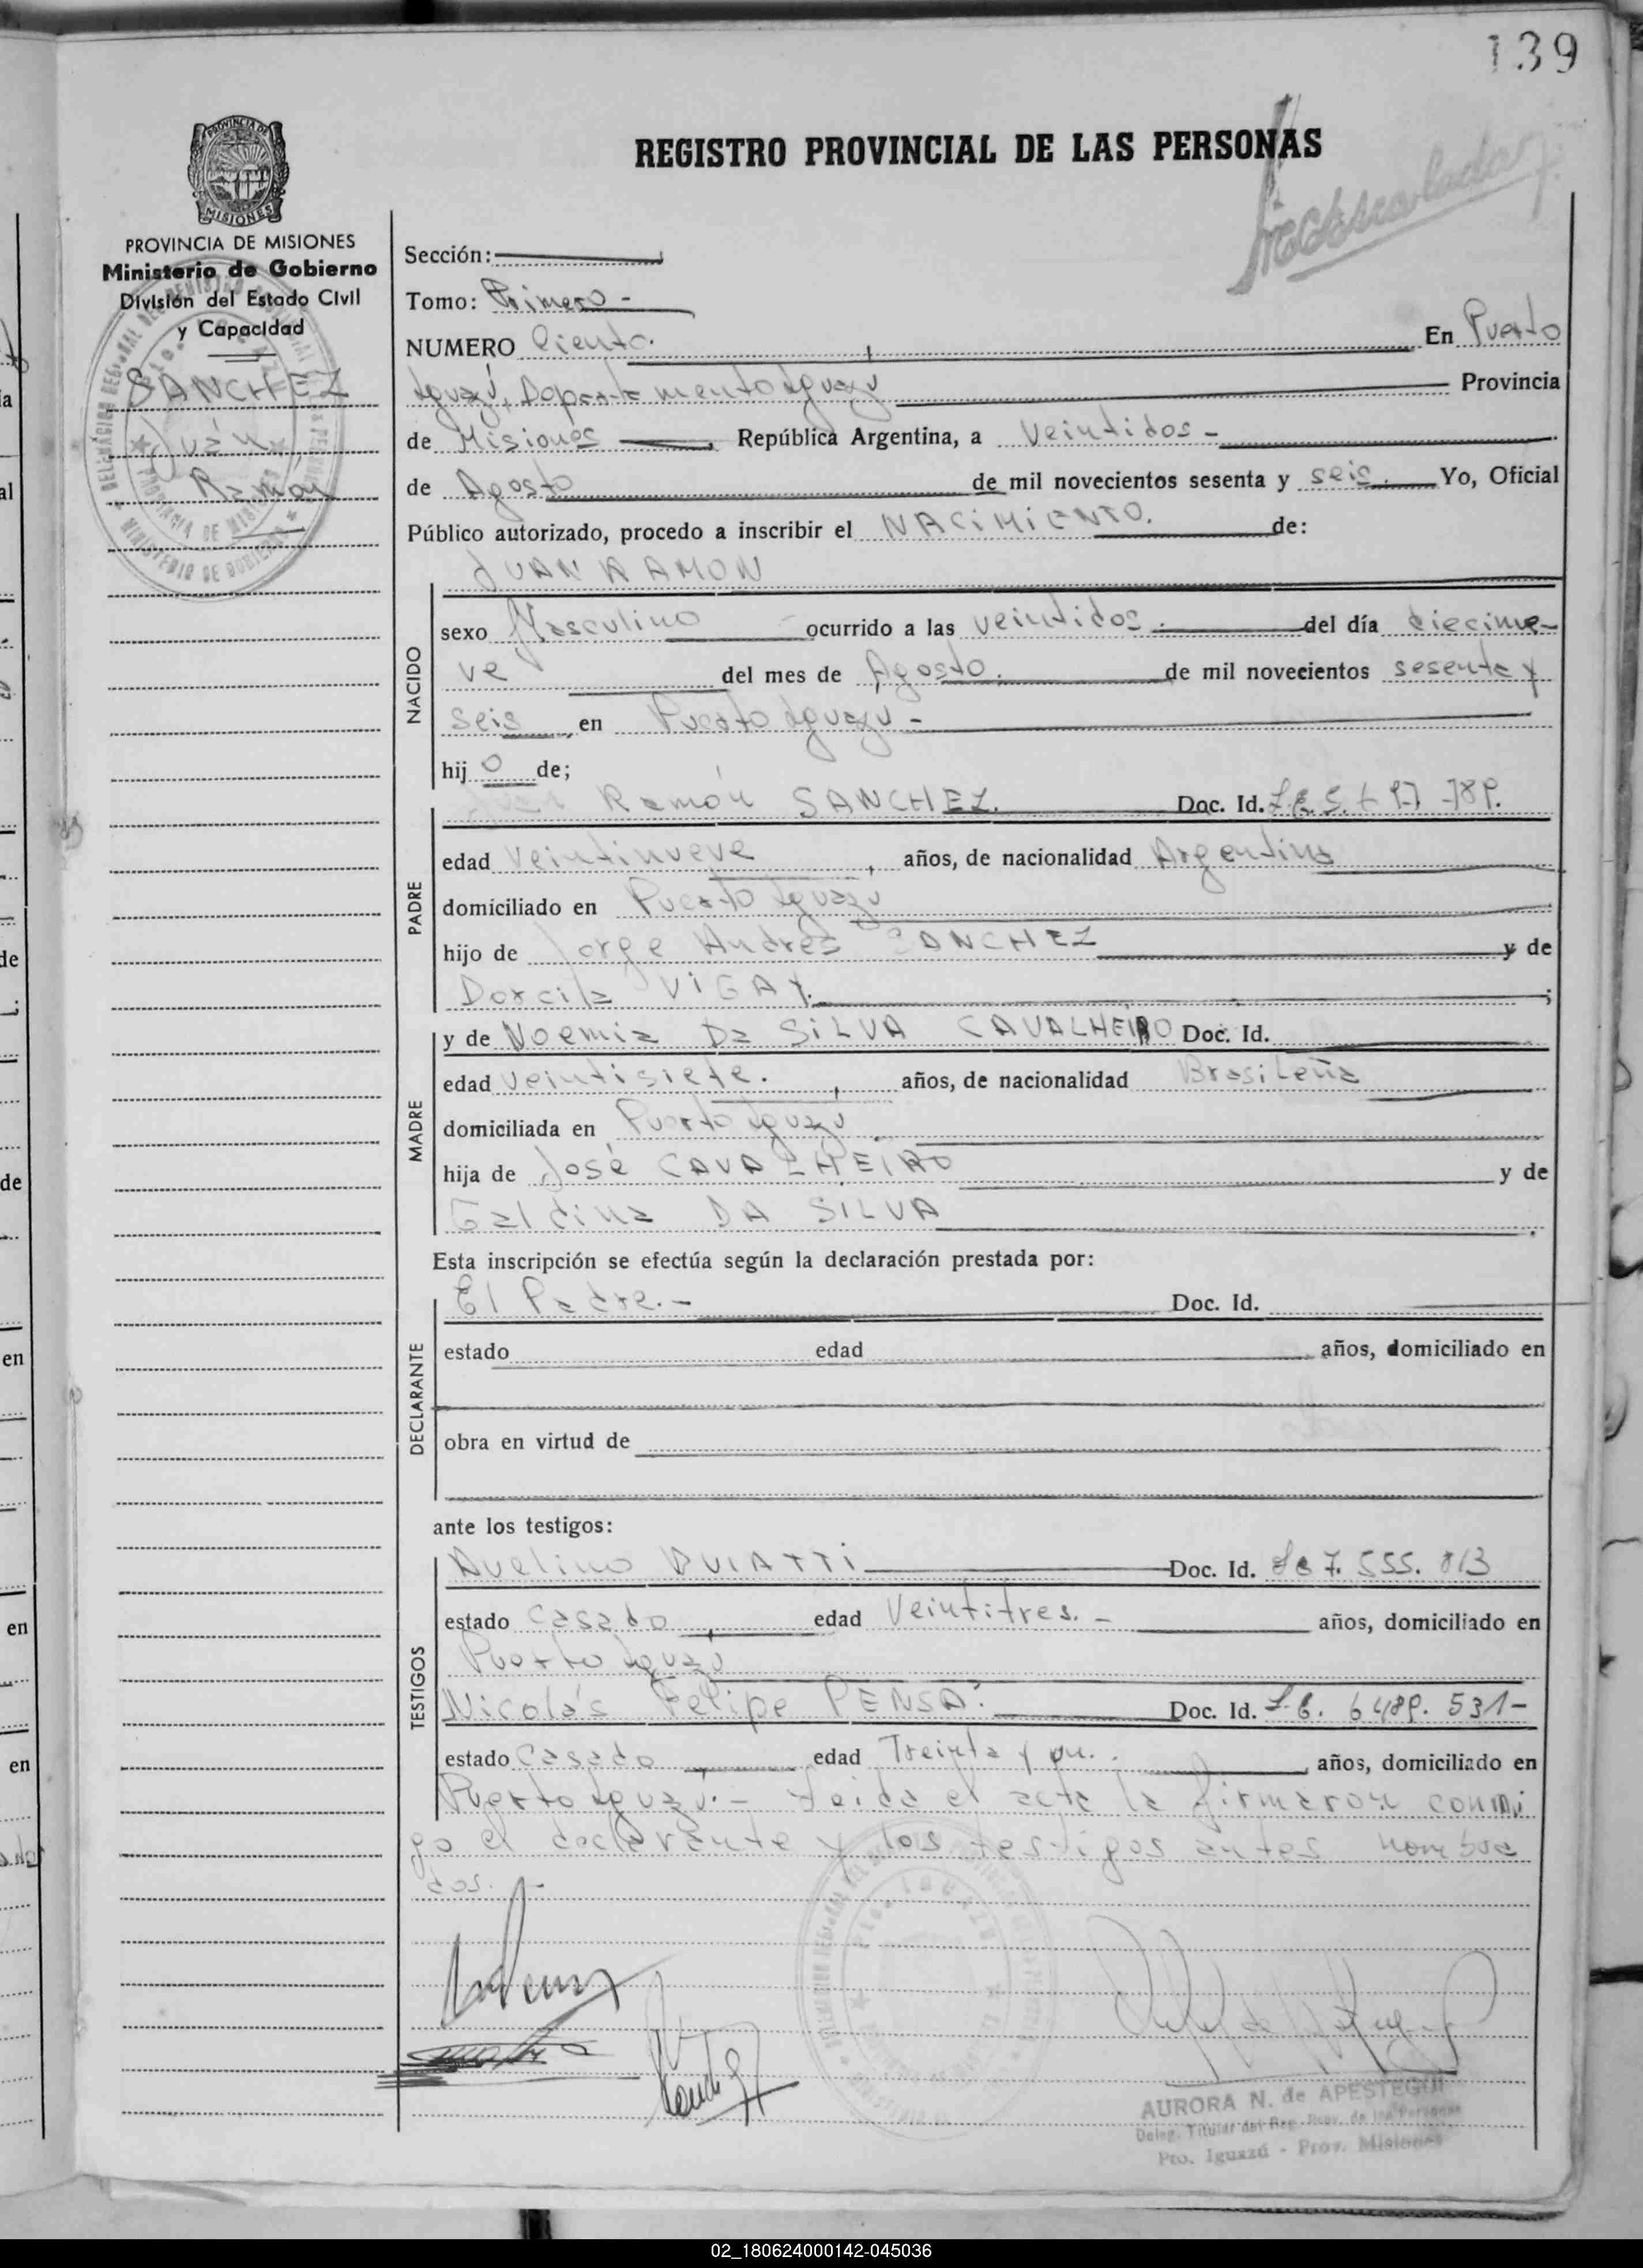 139
PROVINCIA DE MISIONES
PROVINCIA DE MISIONES
Ministerio de Gobierno
División del Estado Civil
y Capacidad
SANCHEZ
Juán
Ramón
REGISTRO PROVINCIAL DE LAS PERSONAS
Sección:
Tomo: Primero -
NUMERO Ciento. En Puerto
Iguazú, Departamento Iguazú Provincia
de Misiones República Argentina, a Veintidos -
de Agosto de mil novecientos sesenta y seis. Yo, Oficial
Público autorizado, procedo a inscribir el NACIMIENTO. de:
JUAN RAMON
NACIDO
sexo Masculino ocurrido a las veintidos. del día diecinue-
ve del mes de Agosto. de mil novecientos sesenta y
seis en Puerto Iguazú -
hijo de;
Juan Ramón SANCHEZ. Doc. Id.
PADRE
edad Veintinueve, años, de nacionalidad Argentina
domiciliado en Puerto Iguazú
hijo de Jorge Andres SANCHEZ y de
Dorcila VIGAY.;
MADRE
y de Noemia Da SILVA CAVALHEIRO Doc. Id.
edad veintisiete., años, de nacionalidad Brasileña
domiciliada en Puerto Iguazú.
hija de José CAVALHEIRO y de
Galdina DA SILVA
Esta inscripción se efectúa según la declaración prestada por:
DECLARANTE
El Padre.- Doc. Id.
estado edad años, domiciliado en
obra en virtud de
ante los testigos:
TESTIGOS
Avelino Doc. Id. 7.555.813
estado Casado, edad Veintitres. - años, domiciliado en
Puerto Iguazú
Nicolás Felipe PENSA. Doc. Id. L.E. 6489.531-
estado Casado edad Treinta y un. años, domiciliado en
Puerto Iguazú.- Leida el acta la firmaron conmi
go el declarante y los testigos antes nombra
dos. -
AURORA N. de APESTEGUI
Deleg. Titular del Reg. Prov. de las Personas
Pto. Iguazú - Prov. Misiones
02_180624000142-045036